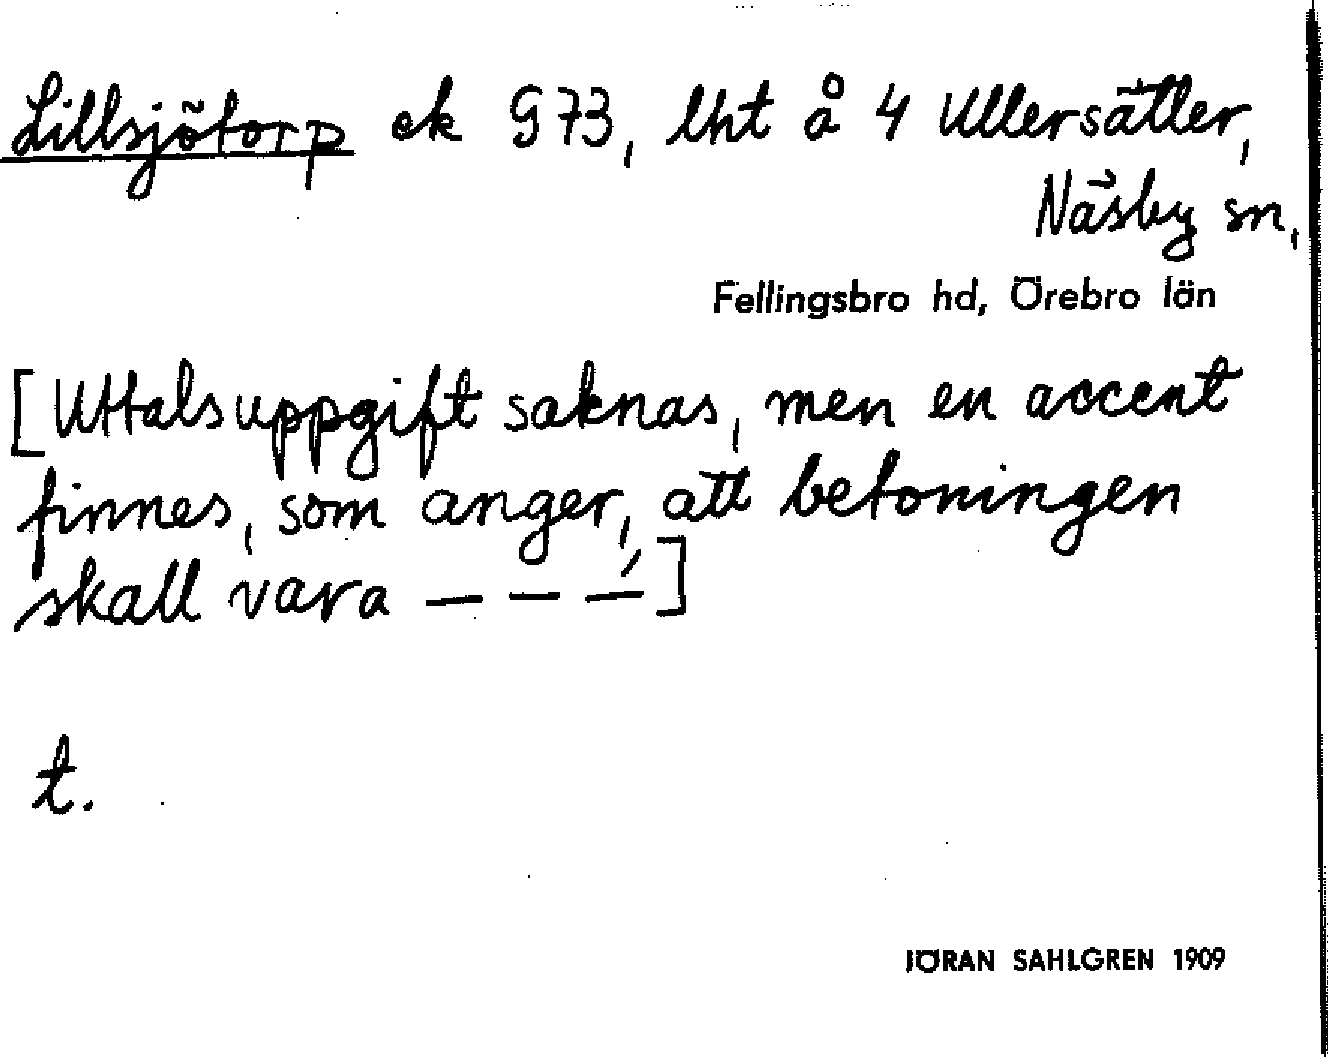 Lillsjötorp ek G73, lht å 4 Ullersätter,
Näsby sn,
Fellingsbro hd, Örebro län
[Uttalsuppgift saknas, men en accent
finnes, som anger, att betoningen
skall vara — — —́]
t.
JÖRAN SAHLGREN 1909